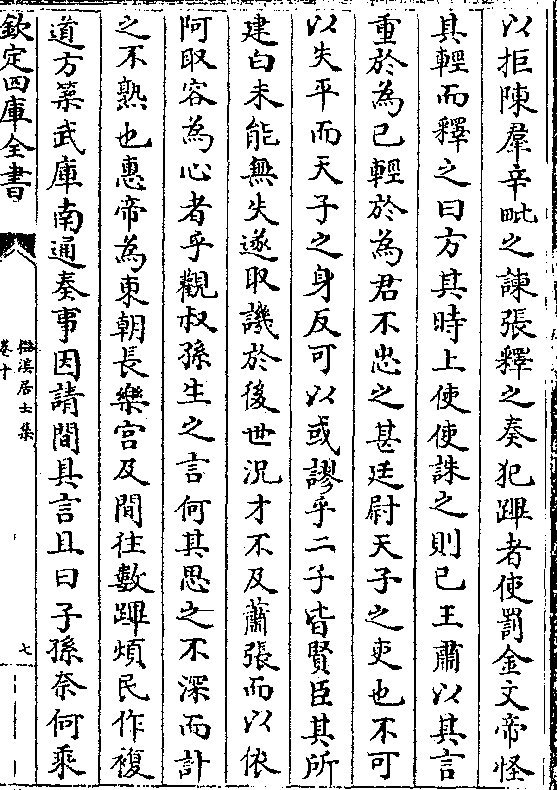 以拒陳羣辛毗之諫張釋之奏犯蹕者使罰金文帝怪
其輕而釋之曰方其時上使使誅之則已王肅以其言
重於為己輕於為君不忠之甚廷尉天子之吏也不可
以失平而天子之身反可以或謬乎二子皆賢臣其所
建白未能無失遂取譏於後世況才不及蕭張而以依
阿取容為心者乎觀叔孫生之言何其思之不深而計
之不熟也惠帝為東朝長樂宮及間往數蹕煩民作複
道方築武庫南通奏事因請間具言且曰子孫奈何乘
欽定四庫全書
溪居士集
卷十
七